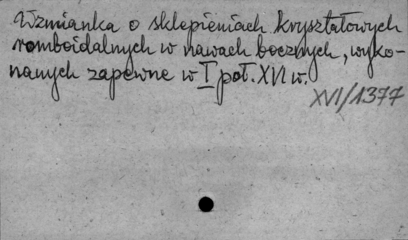 Wzmianka o sklepieniach kryształowych
romboidalnych w nawach bocznych, wyko-
nanych zapewne w I poł. XVI w.
XVI/1377